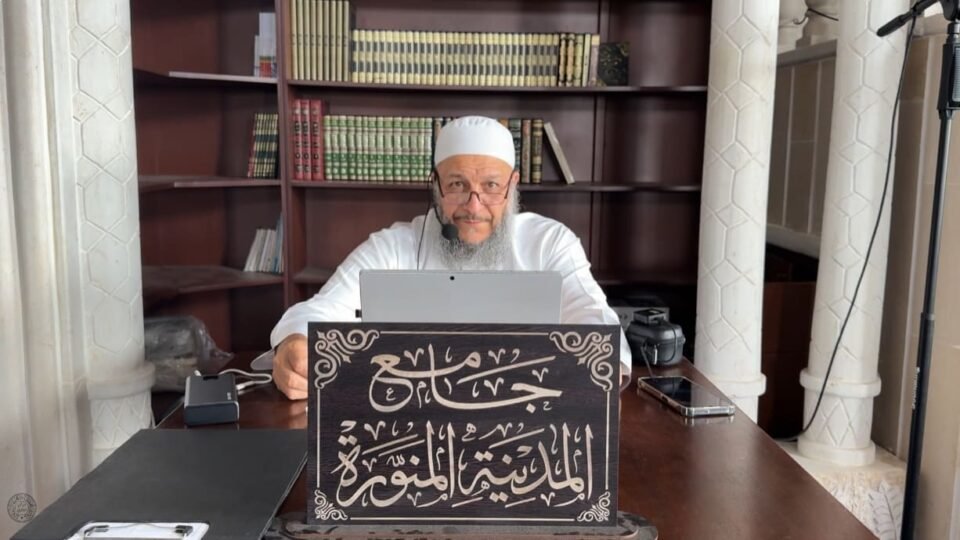 جامع
المدينة المنورة